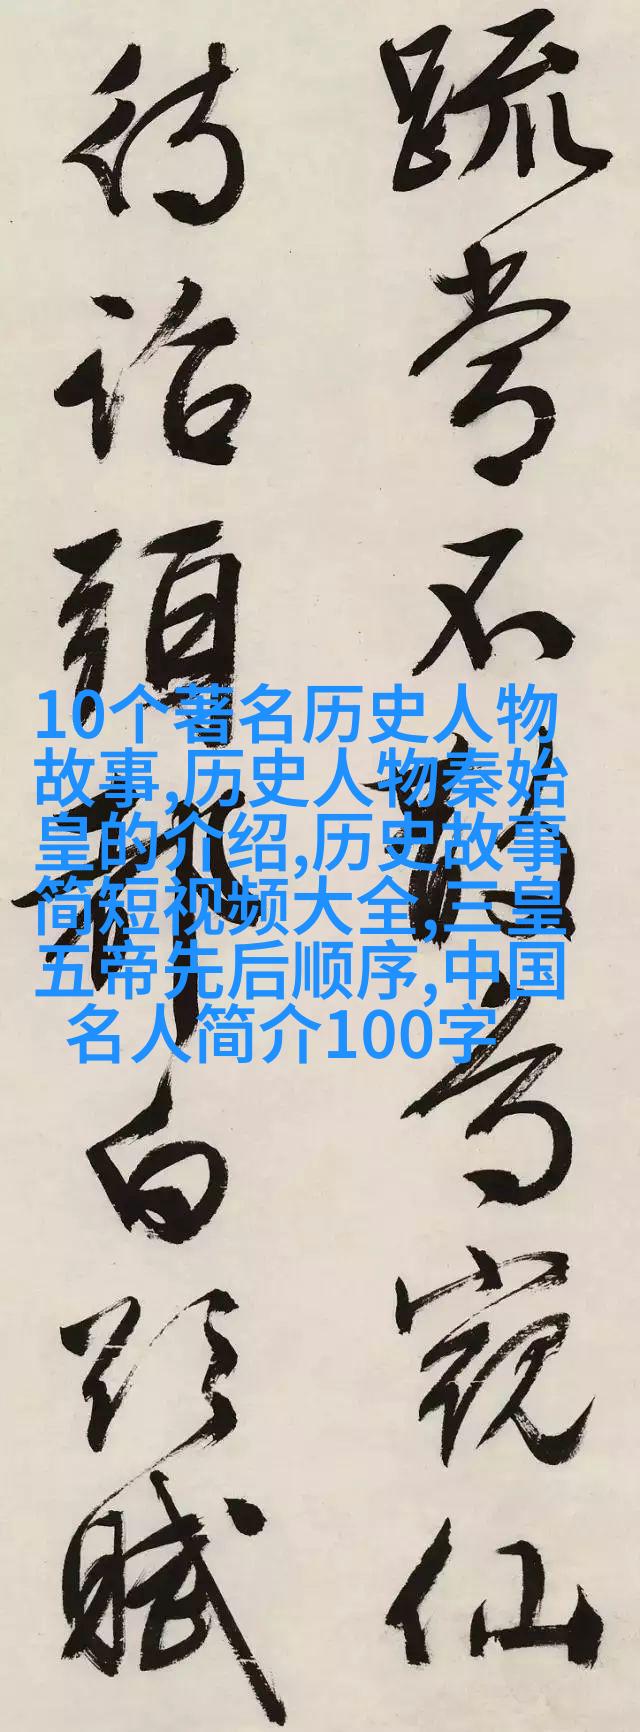 常不仙
待詔白賦
10个著名历史人物
故事,历史人物秦始
皇的介绍,历史故事
简短视频大全,三皇
五帝先后顺序,中国
名人简介100字